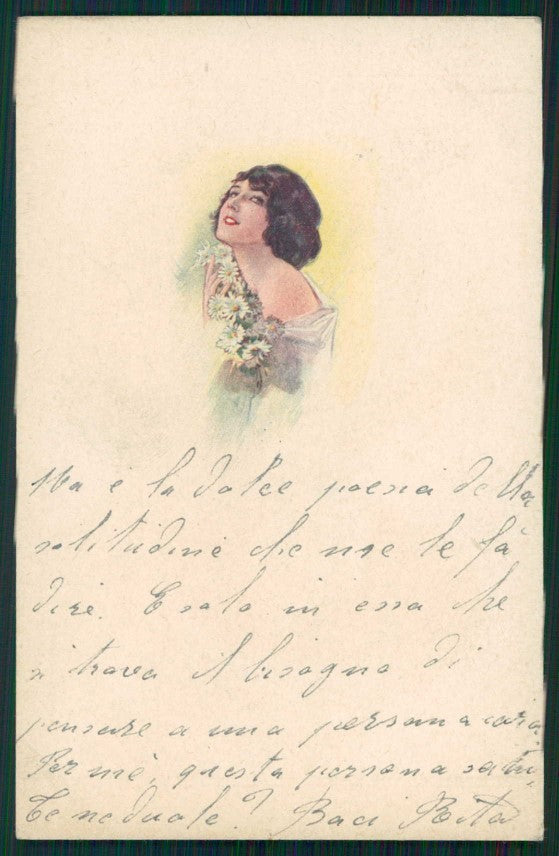 Ma è la dolce poesia della
solitudine che me le fà
dire. E solo in essa che
si trova il bisogno di
pensare a una persona cara
Per mè, questa persona sei tu.
Te ne duole? Baci Rita